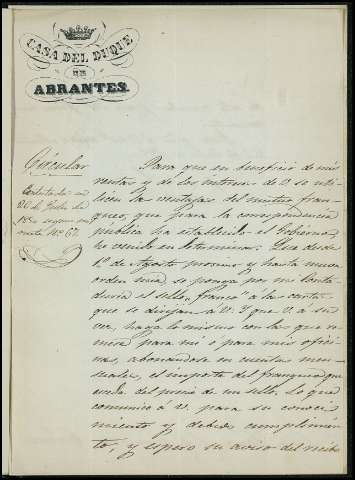 CASA DEL DUQUE
DE
ABRANTES.
Circular
Contestada en
20 de Julio de
185
nota Nº 67.
Para que en beneficio de mis
rentas y de los interes. de V. se uti-
licen las ventajas del mutuo fran-
queo, que para la correspondencia
publica ha establecido el Gobierno,
he venido en determinar: Que desde
1º de Agosto procsimo y hasta nueva
orden mia, se ponga por mi Conta-
duria el sello "franco" á las cartas
que se dirijan á V. Y que V. á su
vez, haga lo mismo con las que re-
mita para mi ó para mis ofici-
nas, abonandose en cuentas men-
suales, el importe del franqueo que
esceda del precio de un sello. Lo que
comunico á V. para su conoci-
miento y debido cumplimien-
to, y espero su aviso del recibo